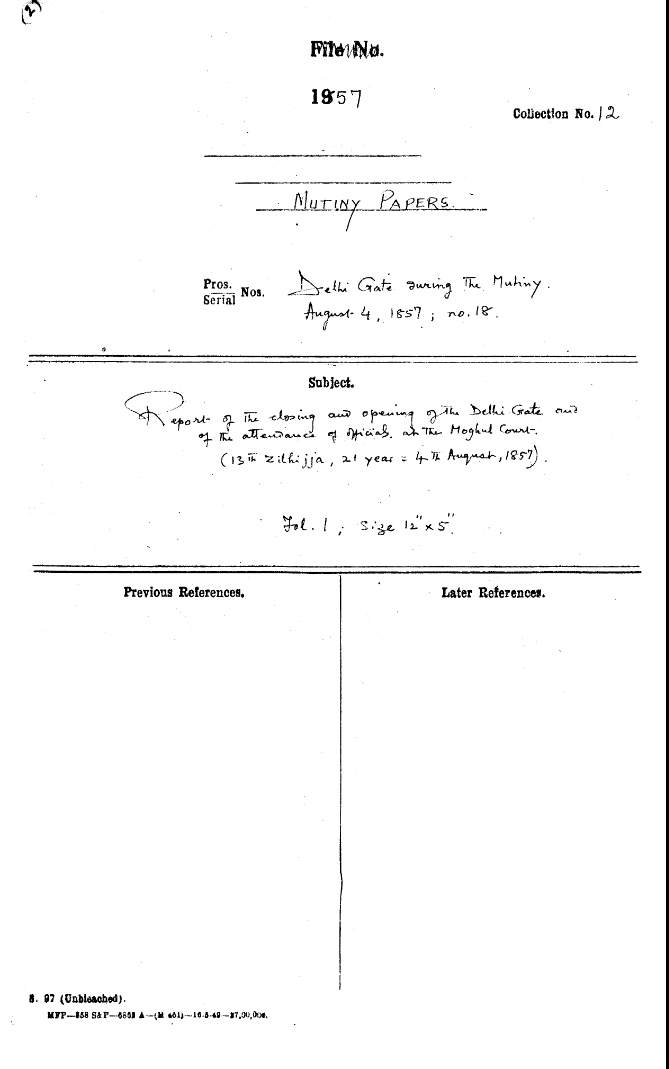 (2)
File No.
1957
Collection No. 12
MUTINY PAPERS.
Pros.
Serial Nos.
Delhi Gate during the Mutiny.
August 4, 1857; no. 18.
Subject.
Report of the closing and opening of the Delhi Gate and
of the attendance of officials at the Moghul Court.
(13th Zilhijja, 21 year = 4th August, 1857).
Fol. 1; Size 12" x 5".
Previous References.
Later References.
S. 97 (Unbleached).
MFP—858 S&P—6863 A—(M 461)—16-5-49—27,00,000.